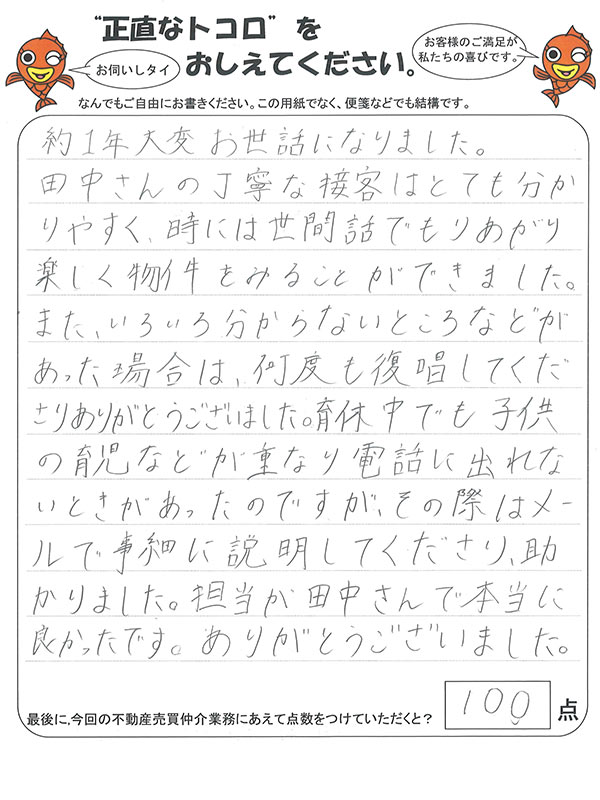 "正直なトコロ"を
おしえてください。
お伺いしタイ
お客様のご満足が
私たちの喜びです。
なんでもご自由にお書きください。この用紙でなく、便箋などでも結構です。
約1年大変お世話になりました。
田中さんの丁寧な接客はとても分か
りやすく、時には世間話でもりあがり
楽しく物件をみることができました。
また、いろいろ分からないところなどが
あった場合は、何度も復唱してくだ
さりありがとうございました。育休中でも子供
の育児などが重なり電話に出れな
いときがあったのですが、その際はメー
ルで事細に説明してくださり、助
かりました。担当が田中さんで本当に
良かったです。ありがとうございました。
最後に、今回の不動産売買仲介業務にあえて点数をつけていただくと? 100 点